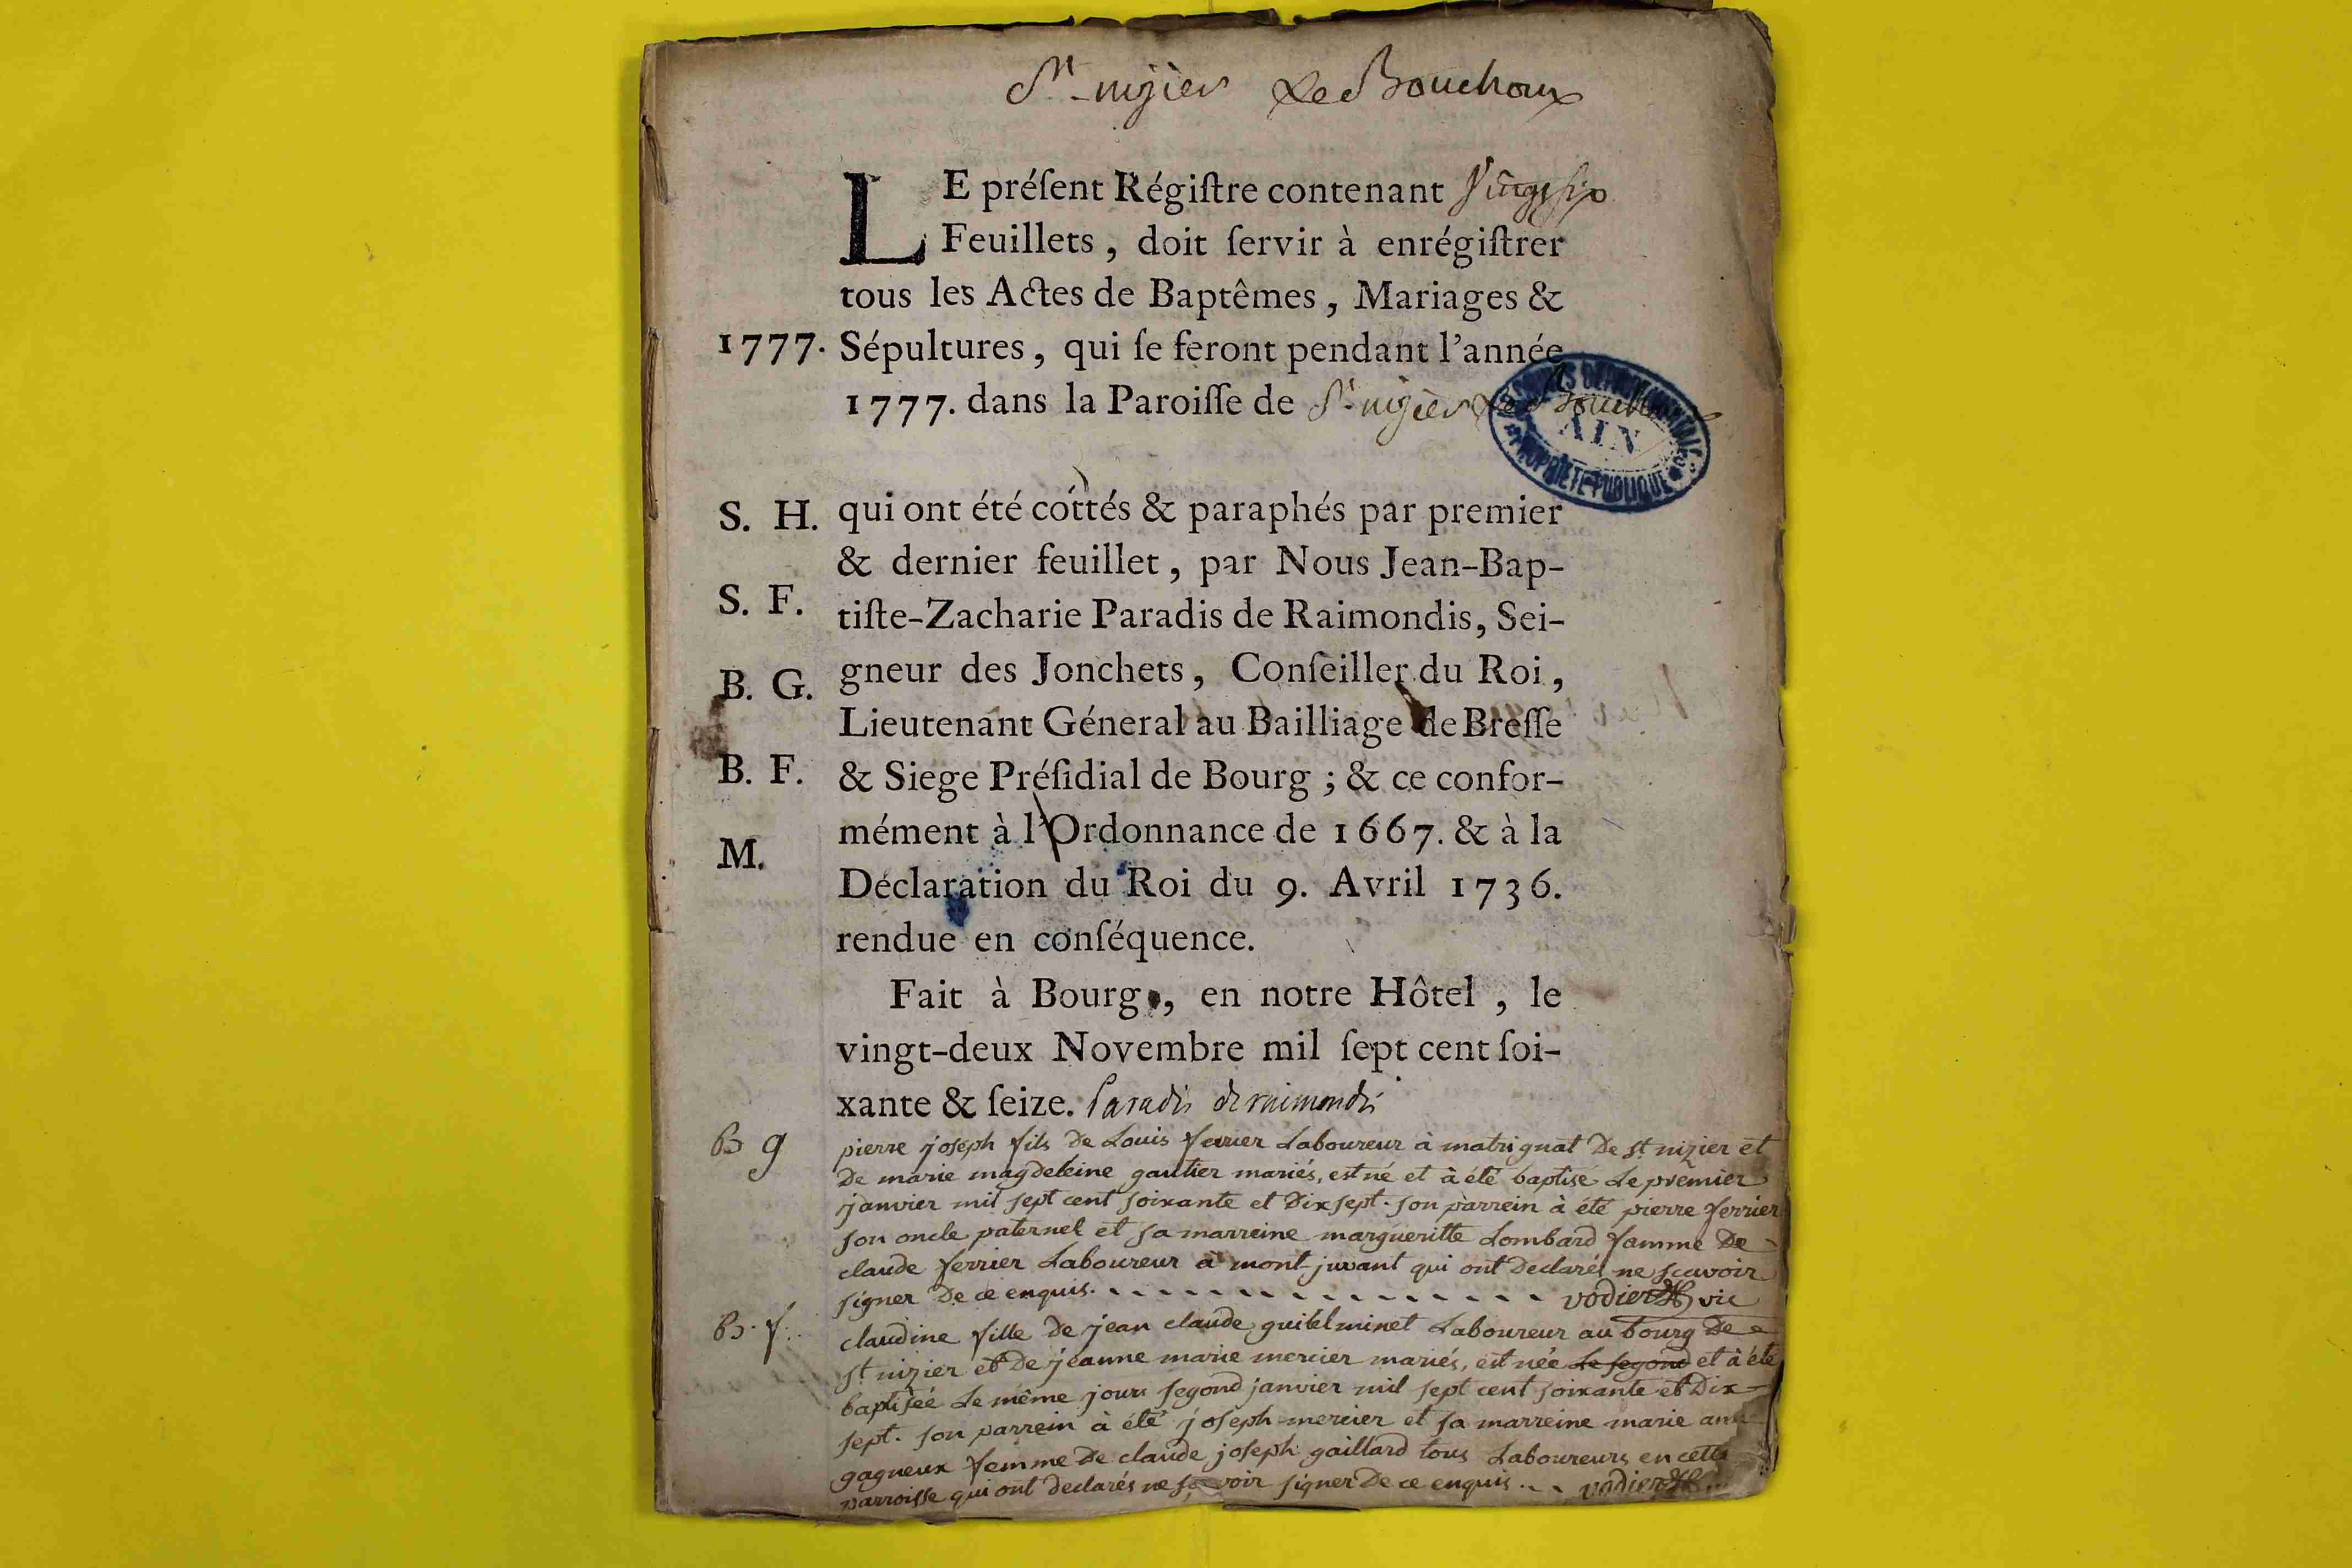 St nizier Le Bouchoux
LE préſent Régiſtre contenant Vingt ſix
Feuillets, doit ſervir à enrégiſtrer
tous les Actes de Baptêmes, Mariages &
1777. Sépultures, qui ſe feront pendant l'année
1777. dans la Paroiſſe de St nizier Le Bouchoux
ARCHIVES DÉPARTEMENTALES
AIN
PROPRIÉTÉ PUBLIQUE
S. H. qui ont été cottés & paraphés par premier
& dernier feuillet, par Nous Jean-Bap-
S. F. tiſte-Zacharie Paradis de Raimondis, Sei-
B. G. gneur des Jonchets, Conſeiller du Roi,
Lieutenant Géneral au Bailliage de Breſſe
B. F. & Siege Préſidial de Bourg ; & ce confor-
mément à l'Ordonnance de 1667. & à la
M. Déclaration du Roi du 9. Avril 1736.
rendue en conſéquence.
Fait à Bourg, en notre Hôtel, le
vingt-deux Novembre mil ſept cent ſoi-
xante & ſeize. Paradis de raimondis
B g pierre joseph fils De Louis ferrier Laboureur à matrignat De st nizier et
De marie magdeleine gautier mariés, est né et à été baptisé Le premier
janvier mil sept cent soixante et Dix sept. son parrein à été pierre ferrier
son oncle paternel et sa marreine margueritte Lombard famme De
claude ferrier Laboureur à mont-juvant qui ont Declarés ne scavoir
signer De ce enquis. vodier vic
B. f. claudine fille De jean claude guillminet Laboureur au bourg De
st nizier et De jeanne marie mercier mariés, est née Le segond et à été
baptisée Le même jours segond janvier mil sept cent soixante et Dix
sept. son parrein à été joseph mercier et sa marreine marie
gagneux femme De claude joseph gaillard tous Laboureurs en cette
parroisse qui ont declarés ne scavoir signer De ce enquis vodier